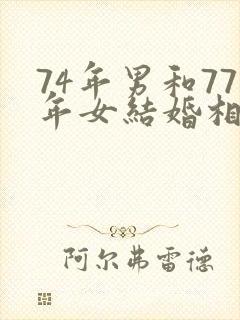 74年男和77
年女結婚相
阿尔弗雷德